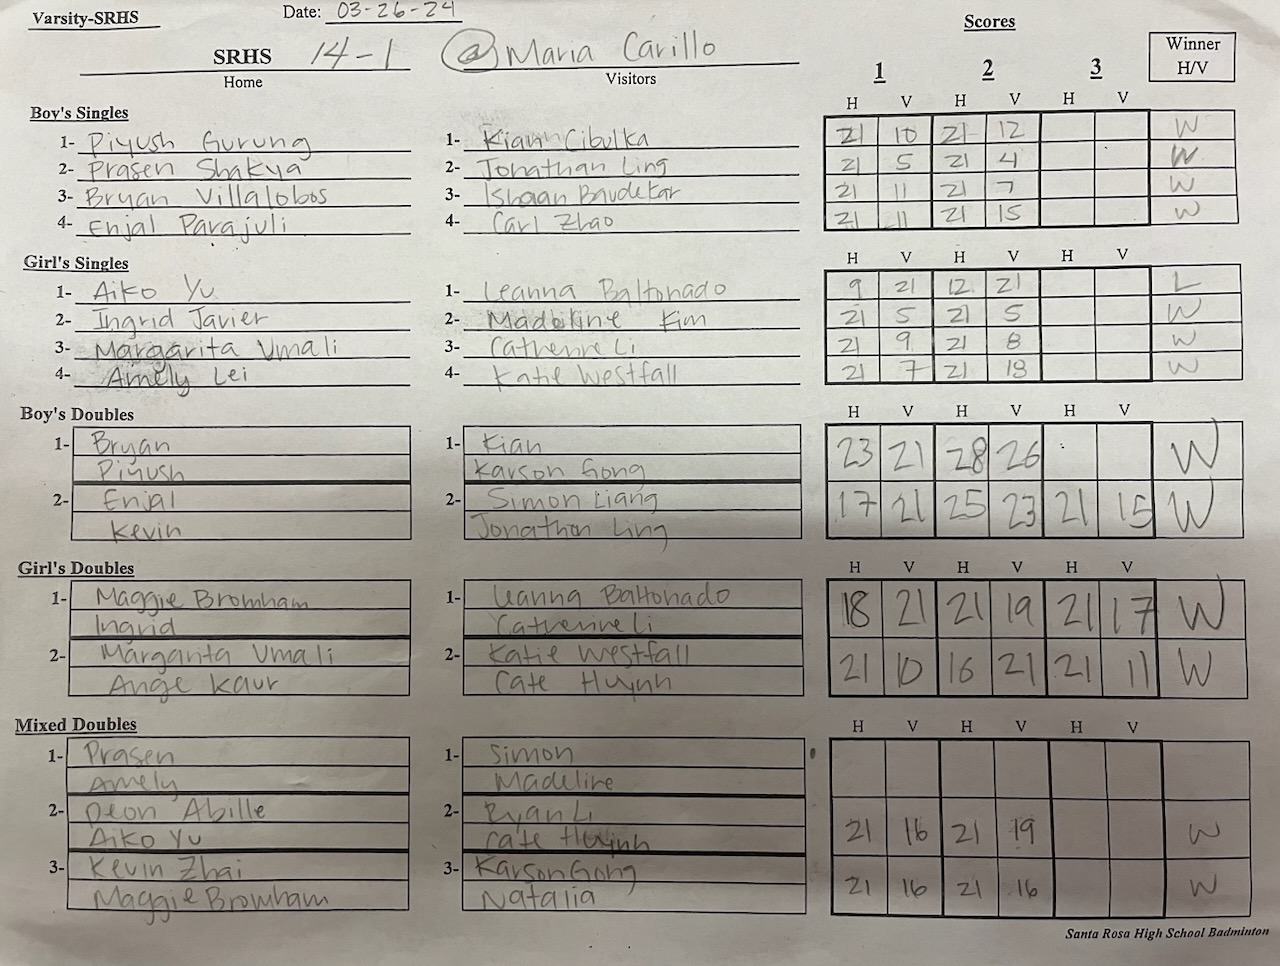 Varsity-SRHS Date: 03-26-24
Scores
SRHS 14-1 @ Maria Carillo
Home Visitors
1 2 3 Winner H/V
Boy's Singles H V H V H V
1- Piyush Gurung 1- Kian Cibulka 21 10 21 12 W
2- Prasen Shakya 2- Jonathan Ling 21 5 21 4 W
3- Bryan Villalobos 3- Ishaan Baudekar 21 11 21 7 W
4- Enjal Parajuli 4- Carl Zhao 21 11 21 15 W
Girl's Singles H V H V H V
1- Aiko Yu 1- Leanna Baltonado 9 21 12 21 L
2- Ingrid Javier 2- Madeline Kim 21 5 21 5 W
3- Margarita Umali 3- Catherine Li 21 9 21 8 W
4- Amely Lei 4- Katie Westfall 21 7 21 18 W
Boy's Doubles H V H V H V
1- Bryan 1- Kian 23 21 28 26 W
Piyush Karson Gong
2- Enjal 2- Simon Liang 17 21 25 23 21 15 W
Kevin Jonathan Ling
Girl's Doubles H V H V H V
1- Maggie Bromham 1- Leanna Baltonado 18 21 21 19 21 17 W
Ingrid Catherine Li
2- Margarita Umali 2- Katie Westfall 21 10 16 21 21 11 W
Ange Kaur Cate Huynh
Mixed Doubles H V H V H V
1- Prasen 1- Simon
Amely Madeline
2- Deon Abille 2- Ryan Li 21 16 21 19 W
Aiko Yu Cate Huynh
3- Kevin Zhai 3- Karson Gong 21 16 21 16 W
Maggie Bromham Natalia
Santa Rosa High School Badminton